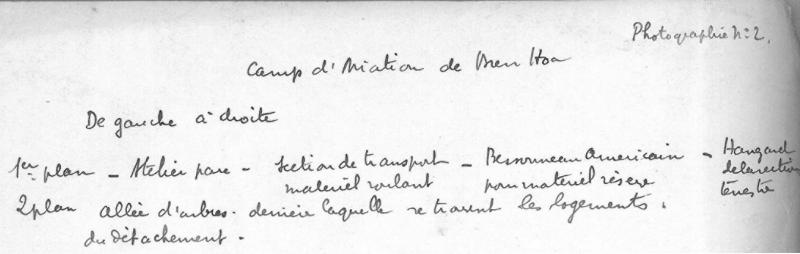 Photographie N: 2.
Camp d'Aviation de Bien Hoa
De gauche à droite
1er plan - Atelier parc - Section de transport - Bessonneau Americain - Hangard
materiel roulant pour materiel réserve de la section
terrestre
2 plan allée d'arbres. derrière laquelle se trouvent les logements.
du détachement.